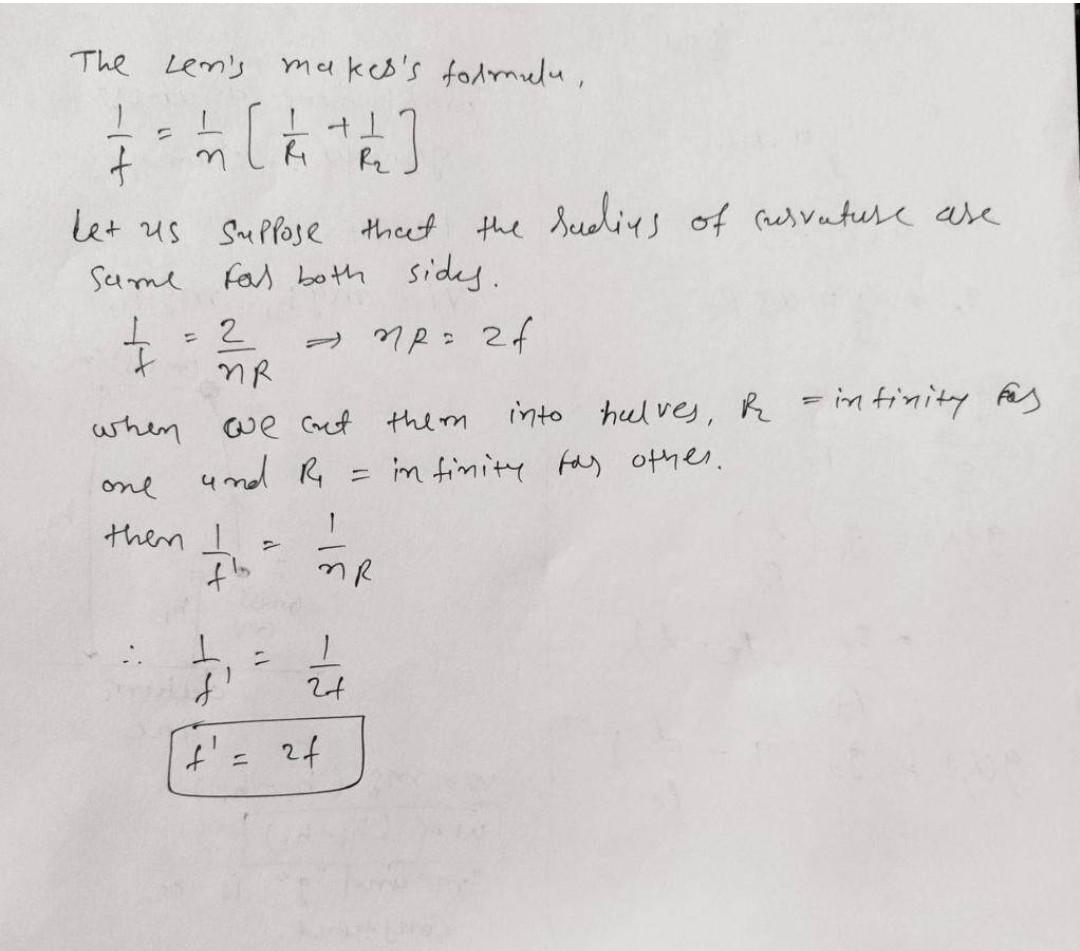 The Len's maker's formula,
1/f = 1/n [ 1/R1 + 1/R2 ]
Let us suppose that the radius of curvature are
same for both sides.
1/f = 2/nR ⇒ nR = 2f
when we cut them into halves, R2 = infinity for
one and R1 = infinity for other.
then 1/f' = 1/nR
∴ 1/f' = 1/2f
f' = 2f